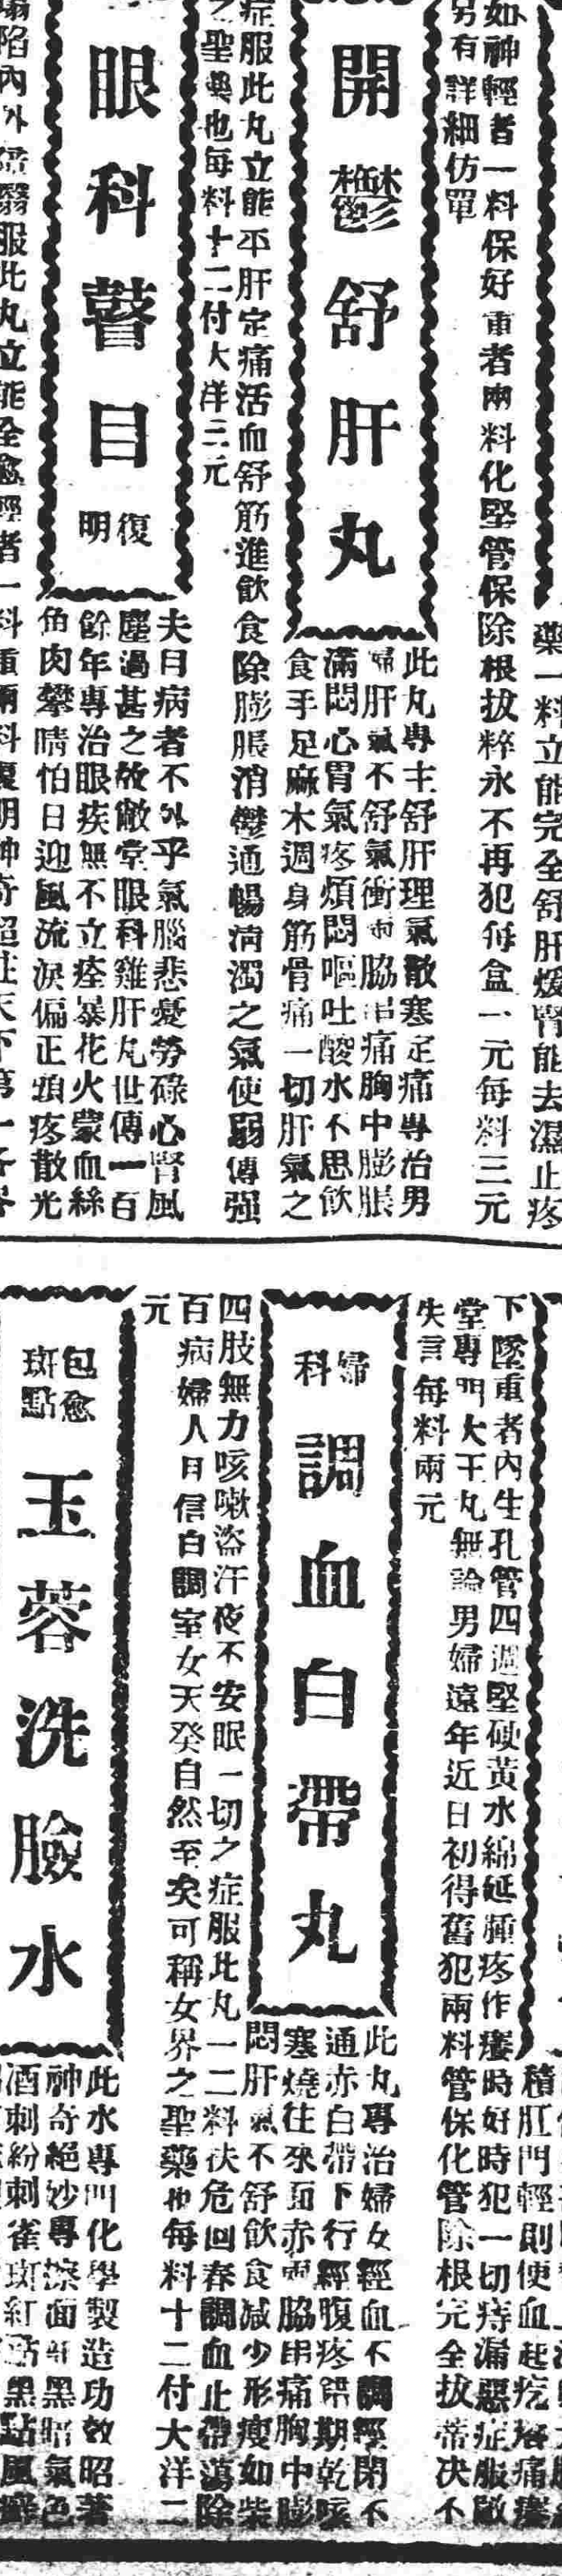 藥一料立能完全舒肝煖腎能去濕止疼
如神輕者一料保好重者兩料化堅管保除根拔粹永不再犯每盒一元每料三元
另有詳細仿單
開鬱舒肝丸
此丸專主舒肝理氣散寒定痛專治男
婦肝氣不舒氣衝兩脇串痛胸中膨脹
滿悶心胃氣疼煩悶嘔吐酸水不思飲
食手足麻木週身筋骨痛一切肝氣之
症服此丸立能平肝定痛活血舒筋進飲食除膨脹消鬱通暢淸濁之氣使弱傳强
之聖藥也每料十二付大洋三元
眼科瞽目
復明
夫目病者不外乎氣腦悲憂勞碌心腎風
塵過甚之故敝堂眼科雞肝丸世傳一百
餘年專治眼疾無不立痊暴花火蒙血絲
魚肉攀睛怕日迎風流淚偏正頭疼散光
塌陷內外服此丸立能全愈輕者一料重兩料復明神奇超天下第一
積肛門輕則便血起疙瘩痛癢
下墜重者內生孔管四週堅硬黃水綿延腫疼作癢時好時犯一切痔漏惡症服敝
堂專門大干丸無論男婦遠年近日初得舊犯兩料管保化管除根完全拔蒂决不
失言每料兩元
婦科
調血白帶丸
此丸專治婦女經血不調經閉不
通赤白帶下行經腹疼錯期乾咳
寒燒往來面赤兩脇串痛胸中膨
悶肝氣不舒飲食减少形瘦如柴
四肢無力咳嗽盜汗夜不安眠一切之症服此丸一二料扶危回春調血止帶蕩除
百病婦人日信自調室女天癸自然至矣可稱女界之聖藥也每料十二付大洋二
元
包愈斑點
玉蓉洗臉水
此水專門化學製造功效昭著
神奇絕妙專擦面䵟黑暗氣色
酒刺紛刺雀斑紅點黑點風癬